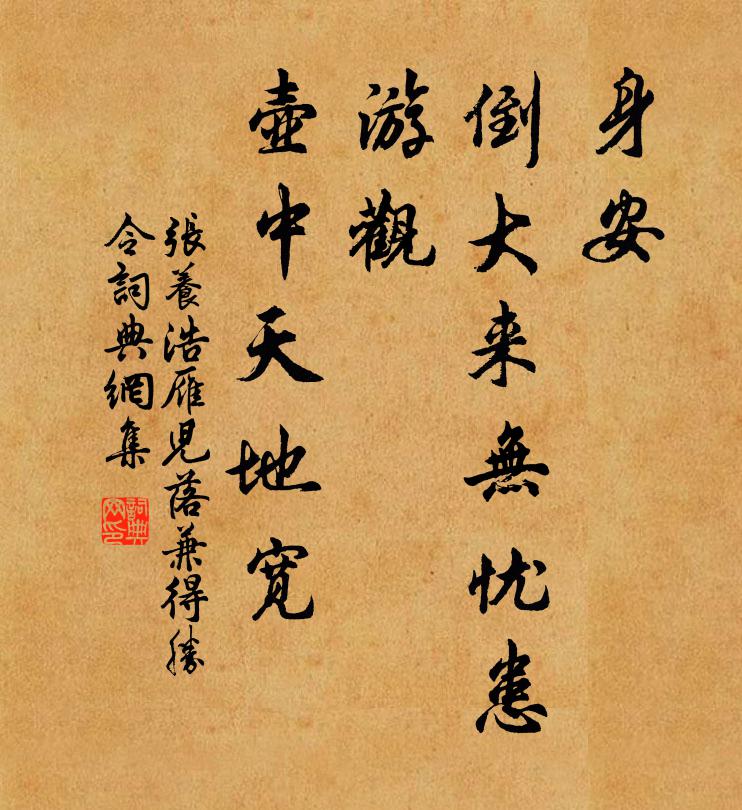 身安
倒大来無忧患
游觀
壺中天地寬
張養浩雁児落兼得勝
令詞典網集
詞典
网印